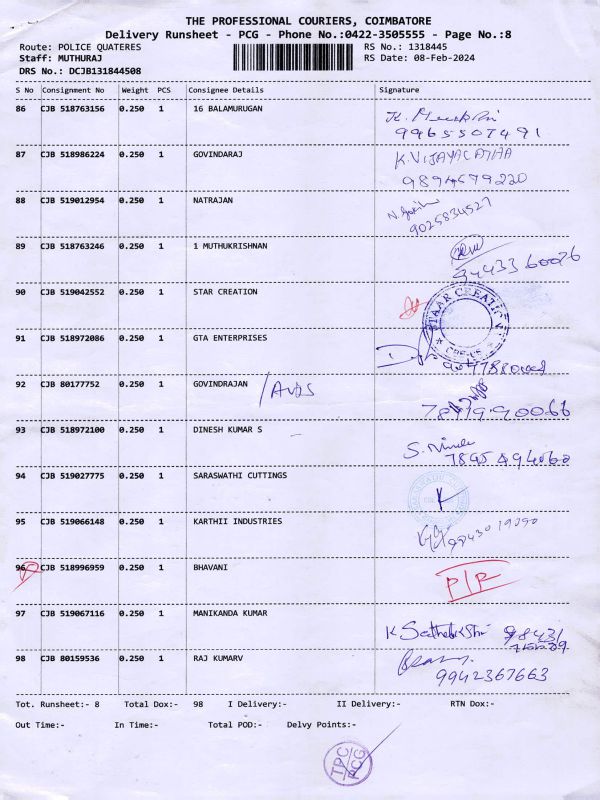 THE PROFESSIONAL COURIERS, COIMBATORE
Delivery Runsheet - PCG - Phone No.:0422-3505555 - Page No.:8
Route: POLICE QUATERES
RS No.: 1318445
Staff: MUTHURAJ
RS Date: 08-Feb-2024
DRS No.: DCJB131844508
S No Consignment No Weight PCS Consignee Details Signature
86 CJB 518763156 0.250 1 16 BALAMURUGAN
9965507491
87 CJB 518986224 0.250 1 GOVINDARAJ K.VIJAYALATHA
9894579220
88 CJB 519012954 0.250 1 NATRAJAN
9025834527
89 CJB 518763246 0.250 1 1 MUTHUKRISHNAN
9443360026
90 CJB 519042552 0.250 1 STAR CREATION
STAAR CREATION
91 CJB 518972086 0.250 1 GTA ENTERPRISES
92 CJB 80177752 0.250 1 GOVINDRAJAN
93 CJB 518972100 0.250 1 DINESH KUMAR S
94 CJB 519027775 0.250 1 SARASWATHI CUTTINGS
95 CJB 519066148 0.250 1 KARTHII INDUSTRIES
96 CJB 518996959 0.250 1 BHAVANI P/R
97 CJB 519067116 0.250 1 MANIKANDA KUMAR
98 CJB 80159536 0.250 1 RAJ KUMARV
9942367663
Tot. Runsheet:- 8 Total Dox:- 98 I Delivery:- II Delivery:- RTN Dox:-
Out Time:- In Time:- Total POD:- Delvy Points:-
TPC
PCG